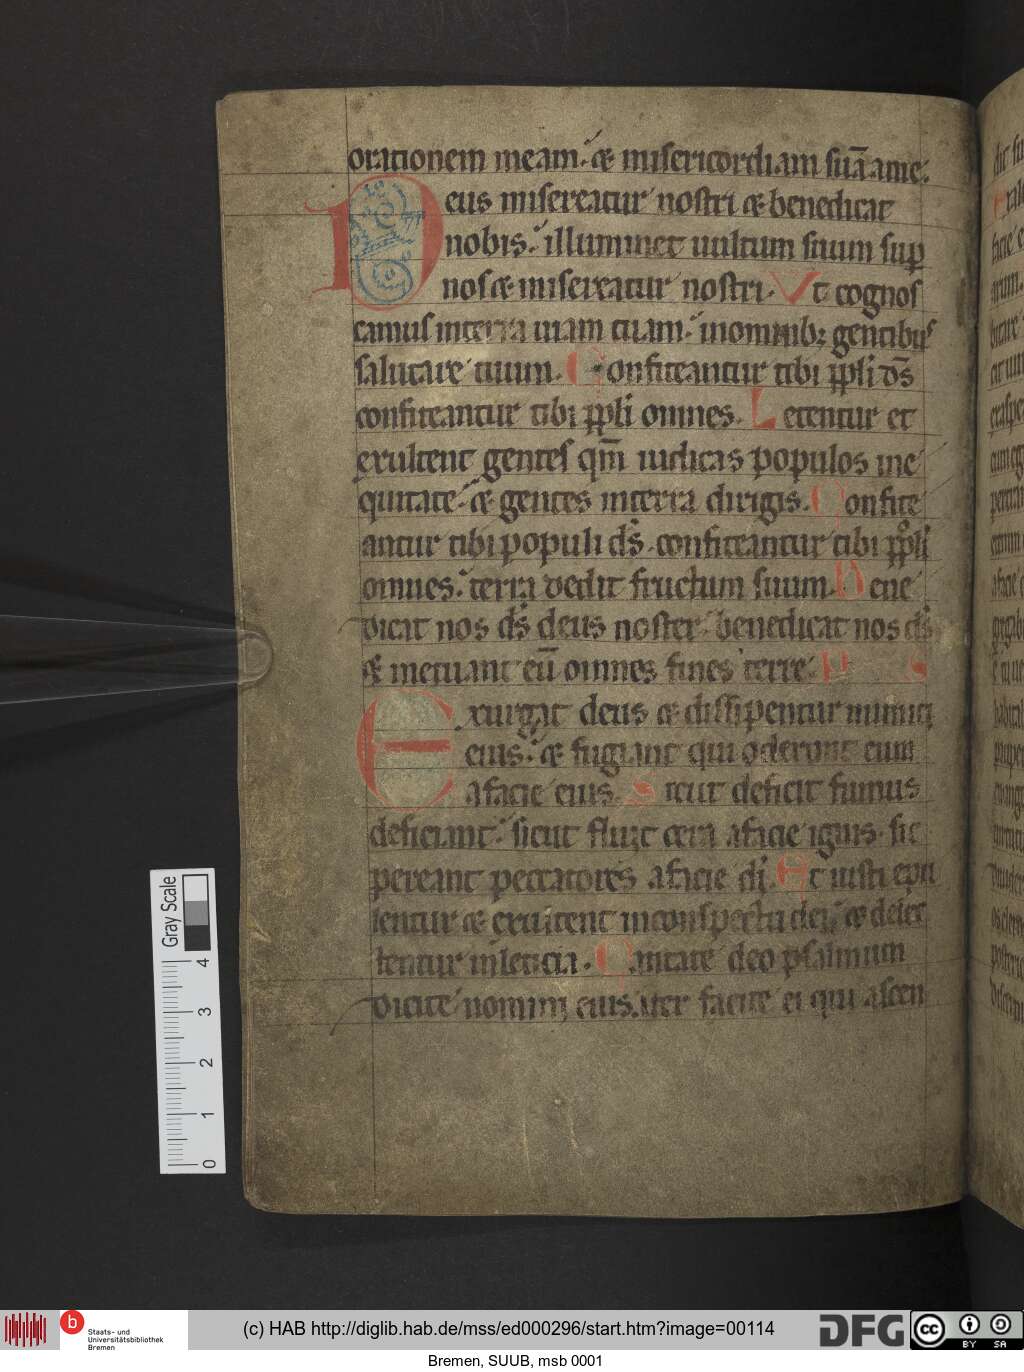 orationem meam. & misericordiam suā ame.
Deus misereatur nostri & benedicat
nobis. illuminet uultum suum sup
nos & misereatur nostri. Vt cognos
camus in terra uiam tuam. in omnib; gentibus
salutare tuum. Confiteantur tibi ppli ds̄
confiteantur tibi ppli omnes. Letentur et
exultent gentes qm̄ iudicas populos in e
quitate. & gentes in terra dirigis. Confite
antur tibi populi ds̄. confiteantur tibi ppli
omnes. terra dedit fructum suum. Bene
dicat nos ds̄ deus noster. benedicat nos ds̄
& metuant eū omnes fines terre.
Exurgat deus & dissipentur inimici
eius. & fugiant qui oderunt eum
a facie eius. Sicut deficit fumus
deficiant. sicut fluit cera a facie ignis. sic
pereant peccatores a facie di. Et iusti epu
lentur & exultent in conspectu dei. & delec
tentur in leticia. Cantate deo psalmum
dicite nomini eius. iter facite ei qui ascen
Gray Scale
4
3
2
1
0
b
Staats- und
Universitätsbibliothek
Bremen
(c) HAB http://diglib.hab.de/mss/ed000296/start.htm?image=00114
DFG
cc
BY SA
Bremen, SUUB, msb 0001